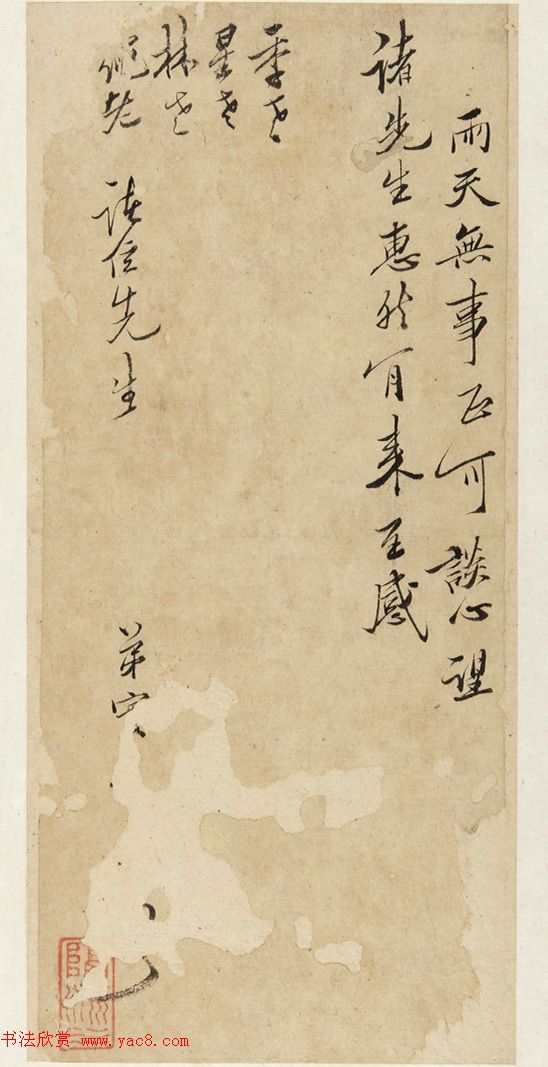 雨天無事正可談心望
諸先生惠然肯来至感
季老
星老
林老
老 諸位先生
弟
书法欣赏 www.yac8.com